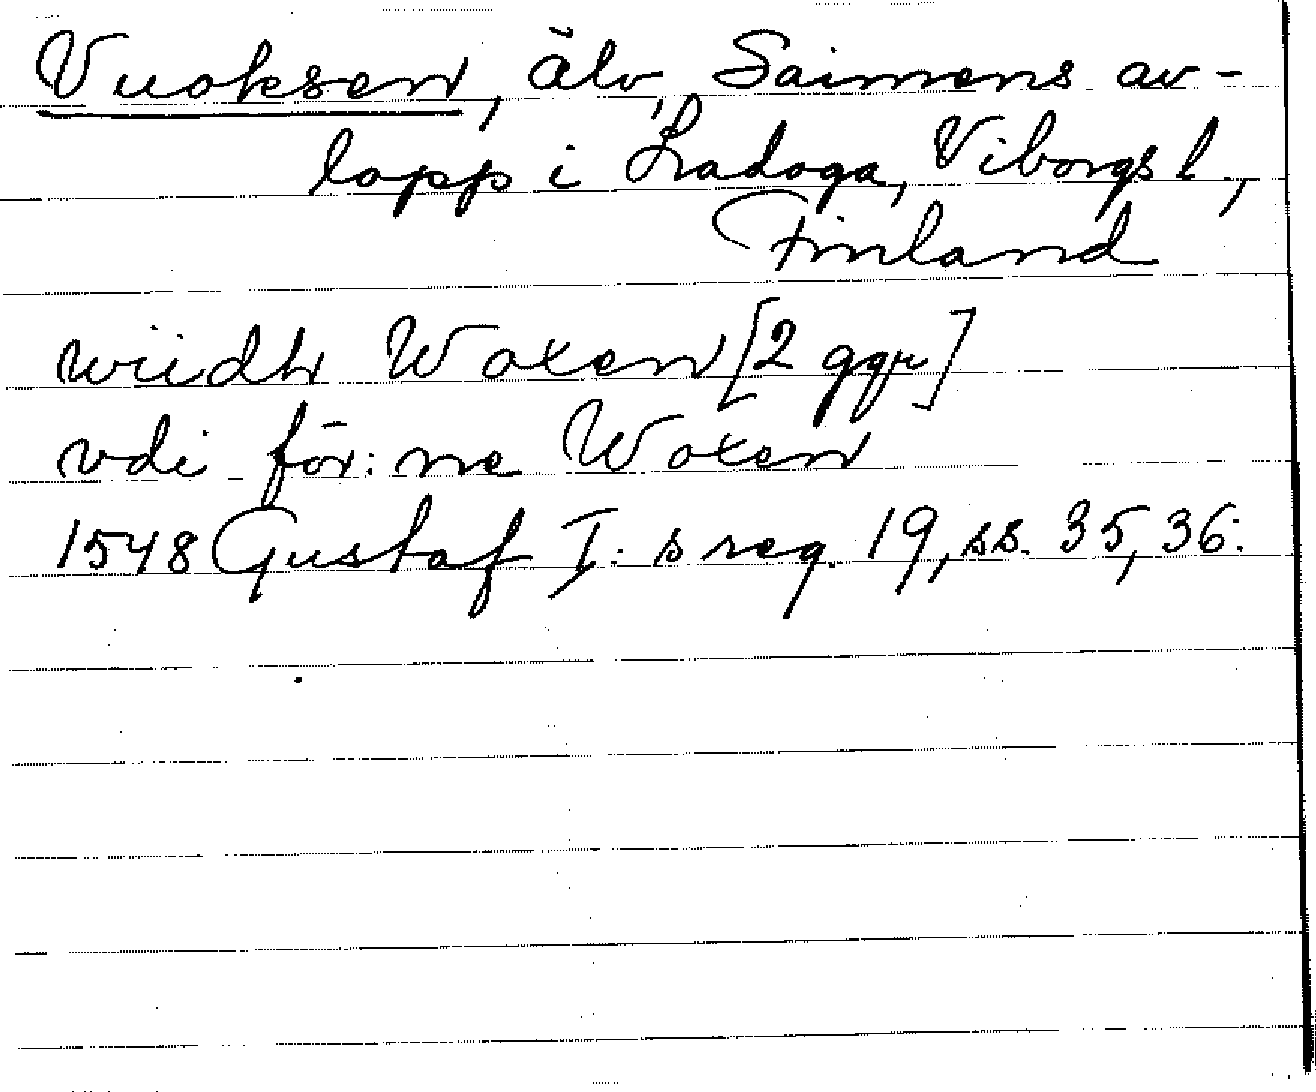 Vuoksen, älv, Saimens av-
lopp i Ladoga, Viborgs l.,
Finland
wiidh Woxen [2 ggr]
vdi för:ne Woxen
1548 Gustaf I:s reg. 19, ss. 35, 36.